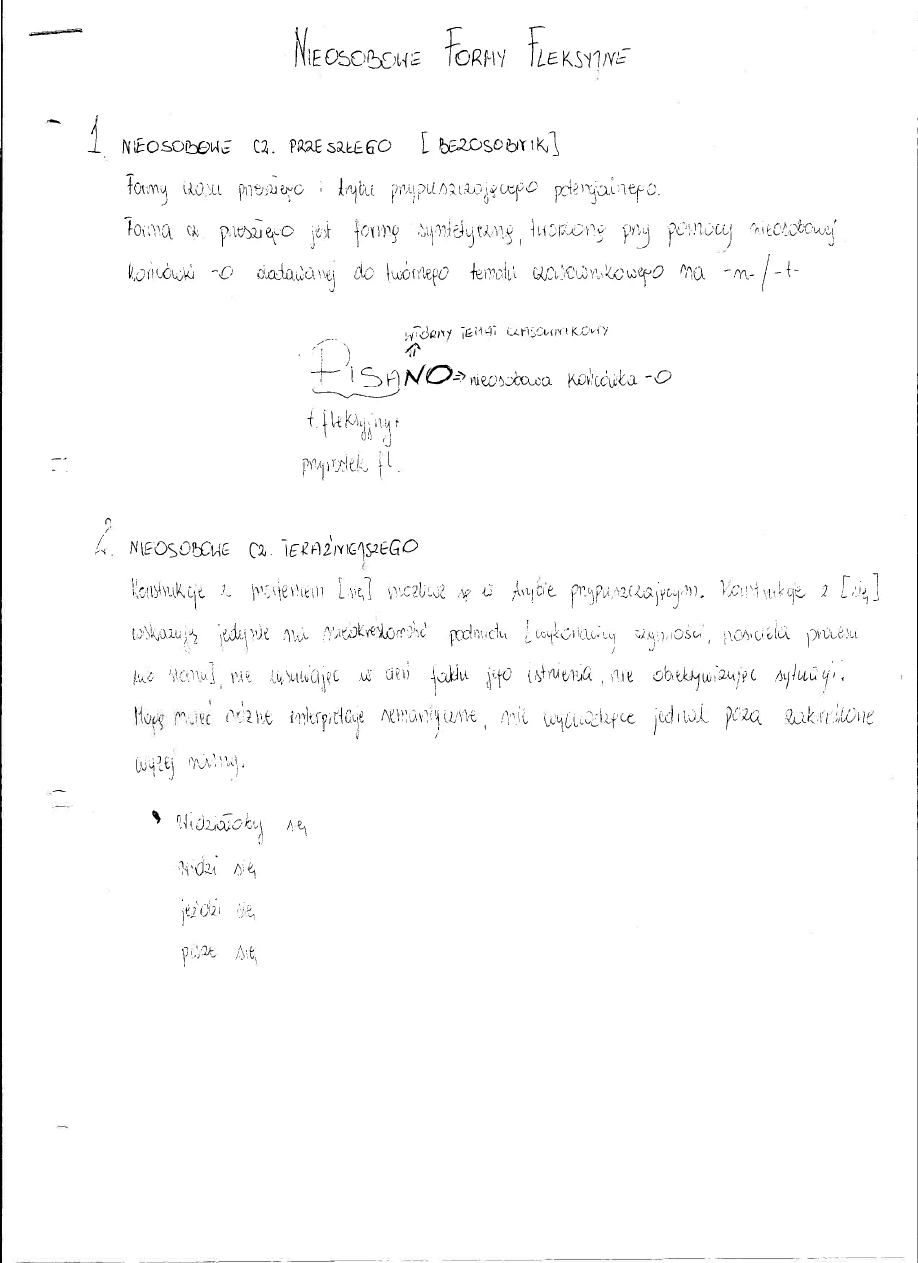 NIEOSOBOWE FORMY FLEKSYJNE
1. NIEOSOBOWE CZ. PRZESZŁEGO [BEZOSOBNIK]
Formy czasu przeszłego i trybu przypuszczającego potencjalnego.
Forma cz przeszłego jest formą syntetyczną, tworzoną przy pomocy nieosobowej
końcówki -o dodawanej do wtórnego tematu czasownikowego na -n-/-t-
wtórny temat czasownikowy
PISANO => nieosobowa końcówka -o
t. fleksyjny +
przyrostek fl.
2. NIEOSOBOWE CZ. TERAŹNIEJSZEGO
Konstrukcje z morfemem [się] możliwe są w trybie przypuszczającym. Konstrukcje z [się]
wskazują jedynie na nieokreśloność podmiotu [wykonawcy czynności, nosiciela procesu
lub stanu], nie usuwając w cień faktu jego istnienia, nie obiektywizując sytuacji.
Mogą mieć różne interpretacje semantyczne, nie wychodzące jednak poza zakreślone
wyżej
Widziałoby się
widzi się
jeździ się
pisze się